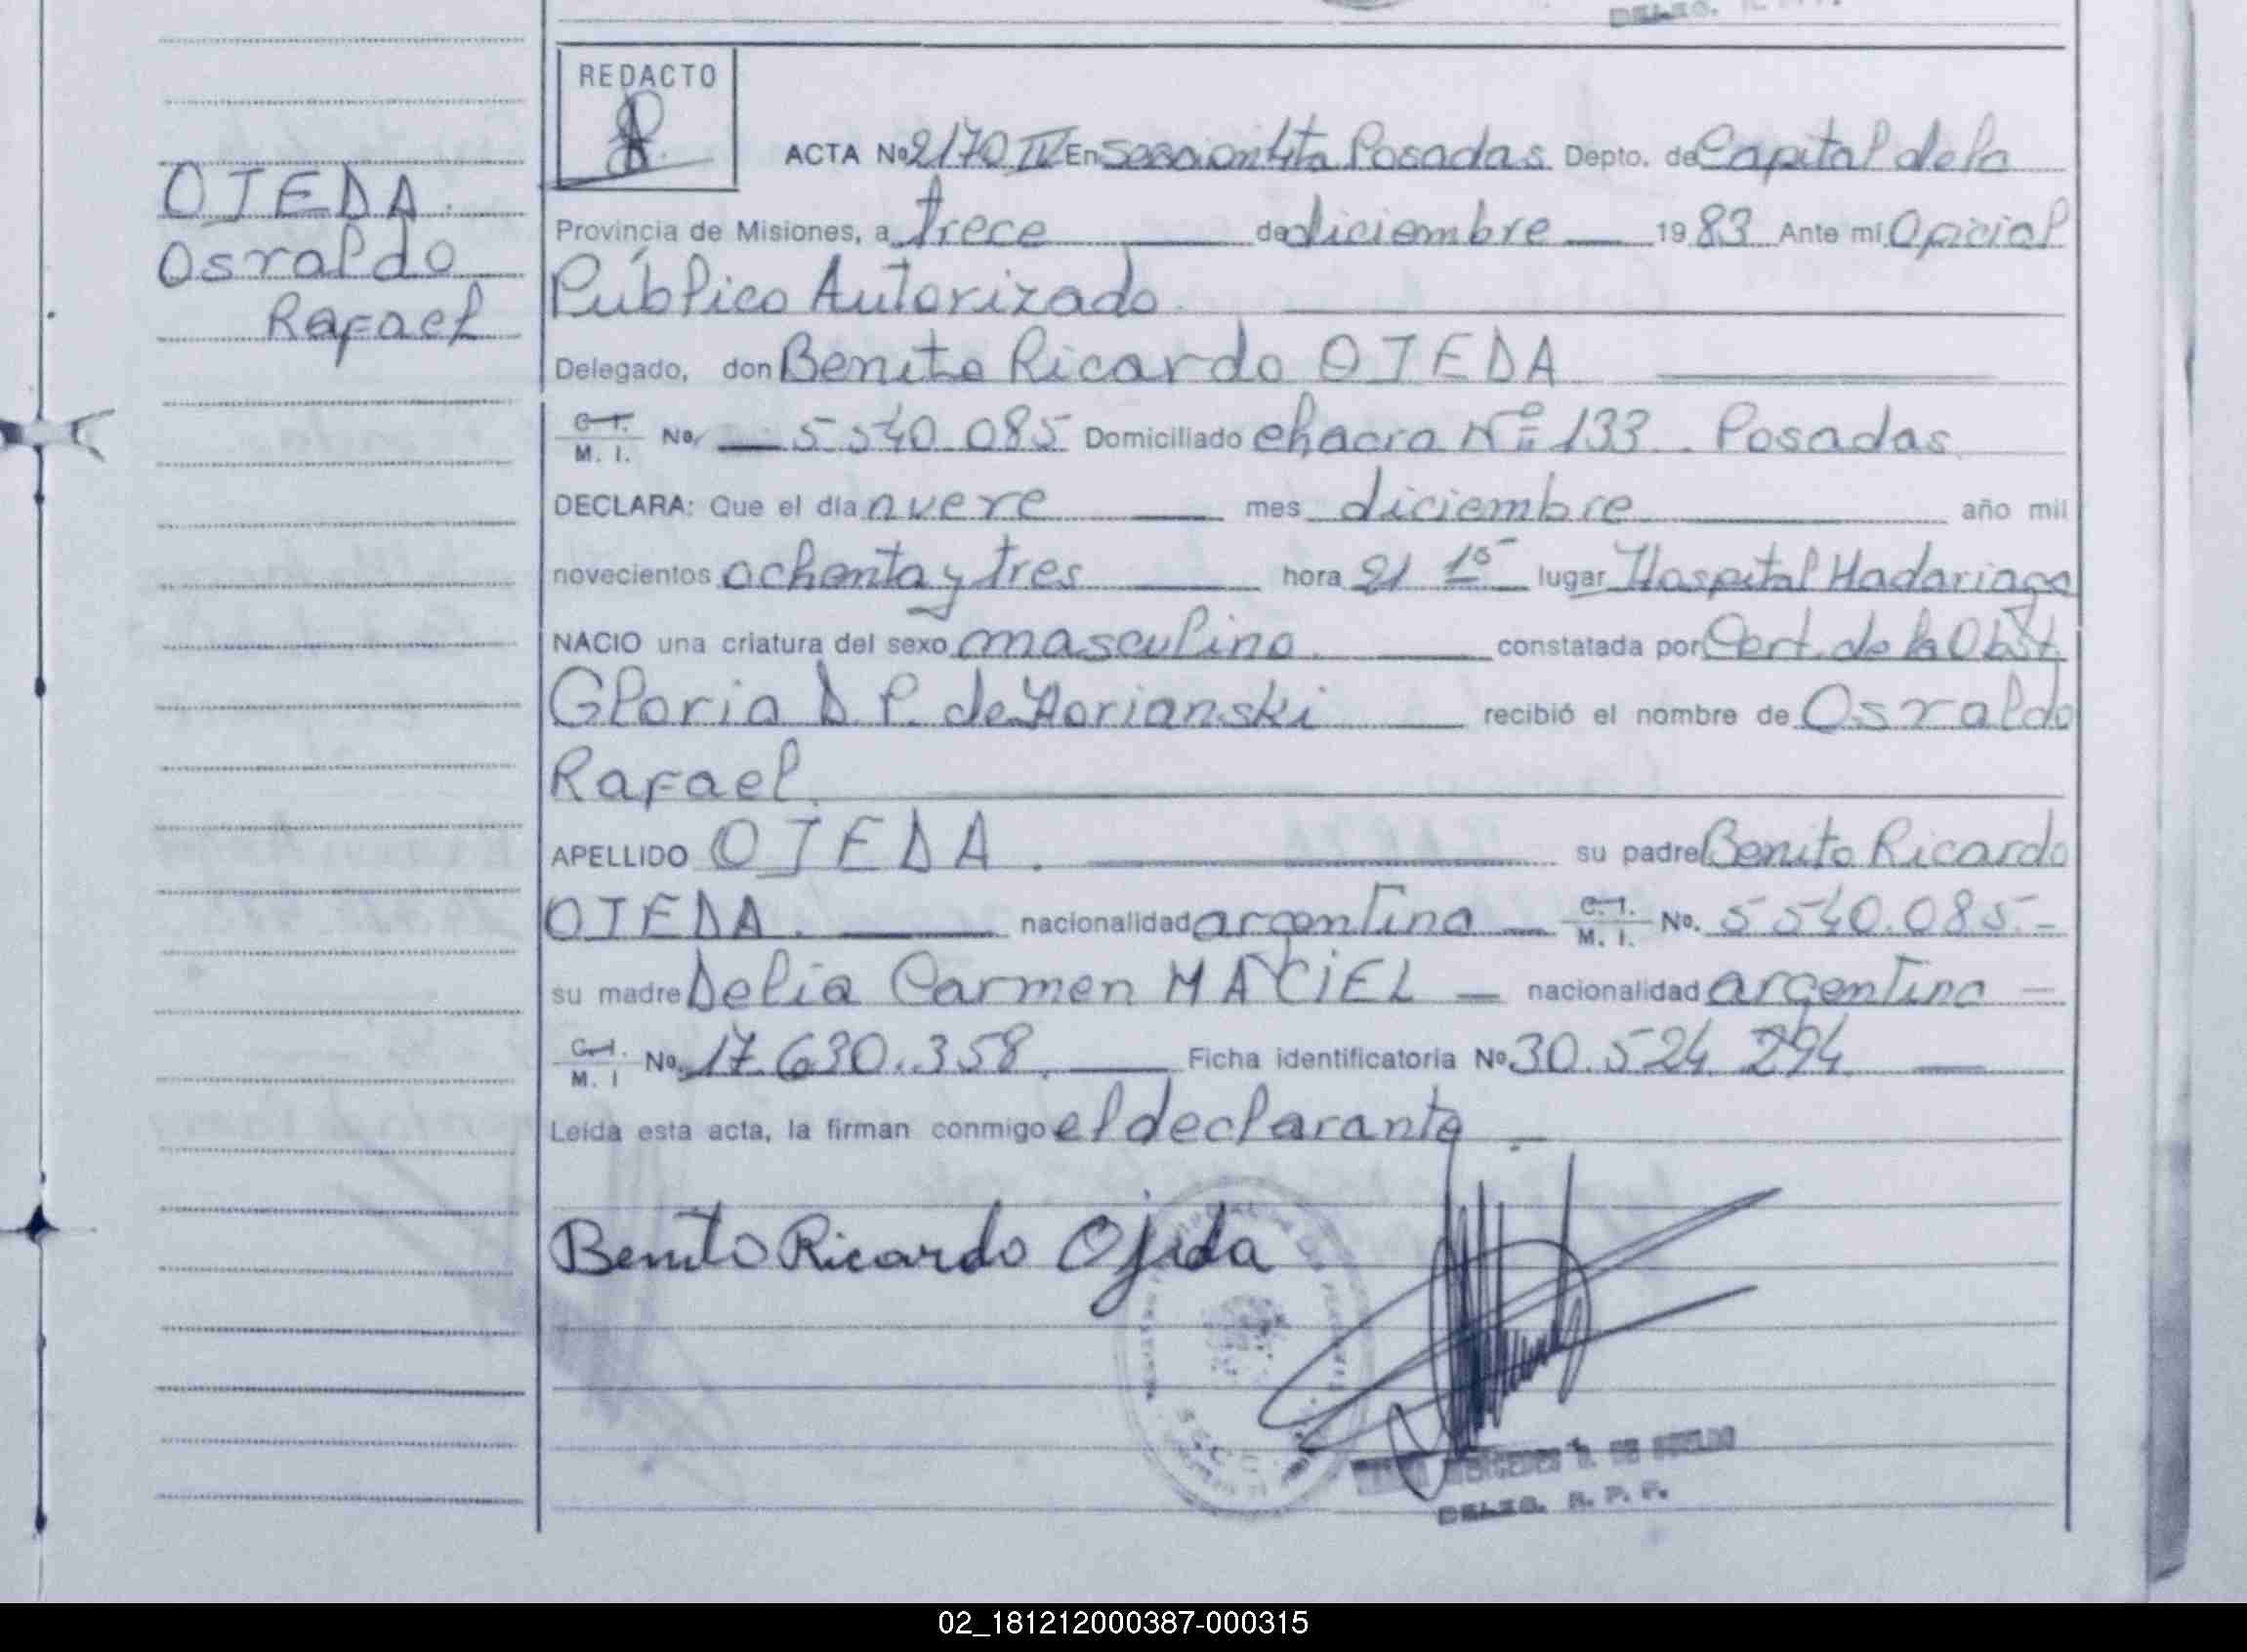 REDACTO
ACTA Nº 2170 IV En seccion 4ta Posadas Depto. de Capital de la
OJEDA
Provincia de Misiones, a trece de diciembre 1983 Ante mí Oficial
Osvaldo
Público Autorizado.
Rafael
Delegado, don Benito Ricardo OJEDA
C. I.
M. I. No. 5540.085 Domiciliado chacra Nº 133. Posadas
DECLARA: Que el día nueve mes diciembre año mil
novecientos ochenta y tres hora 21 15 lugar Hospital Madariaga
NACIO una criatura del sexo masculino. constatada por Cert. de la Obst.
Gloria D. P. de recibió el nombre de Osvaldo
Rafael.
APELLIDO OJEDA. su padre Benito Ricardo
OJEDA. nacionalidad argentina C. I. M. I. No. 5540.085.-
su madre Delia Carmen MACIEL nacionalidad argentina
C. I.
M. I No. 17.630.358. Ficha identificatoria Nº 30.524.294
Leída esta acta, la firman conmigo el declarante
Benito Ricardo Ojeda
MERCEDES
DELEG. R. P. P.
02_181212000387-000315